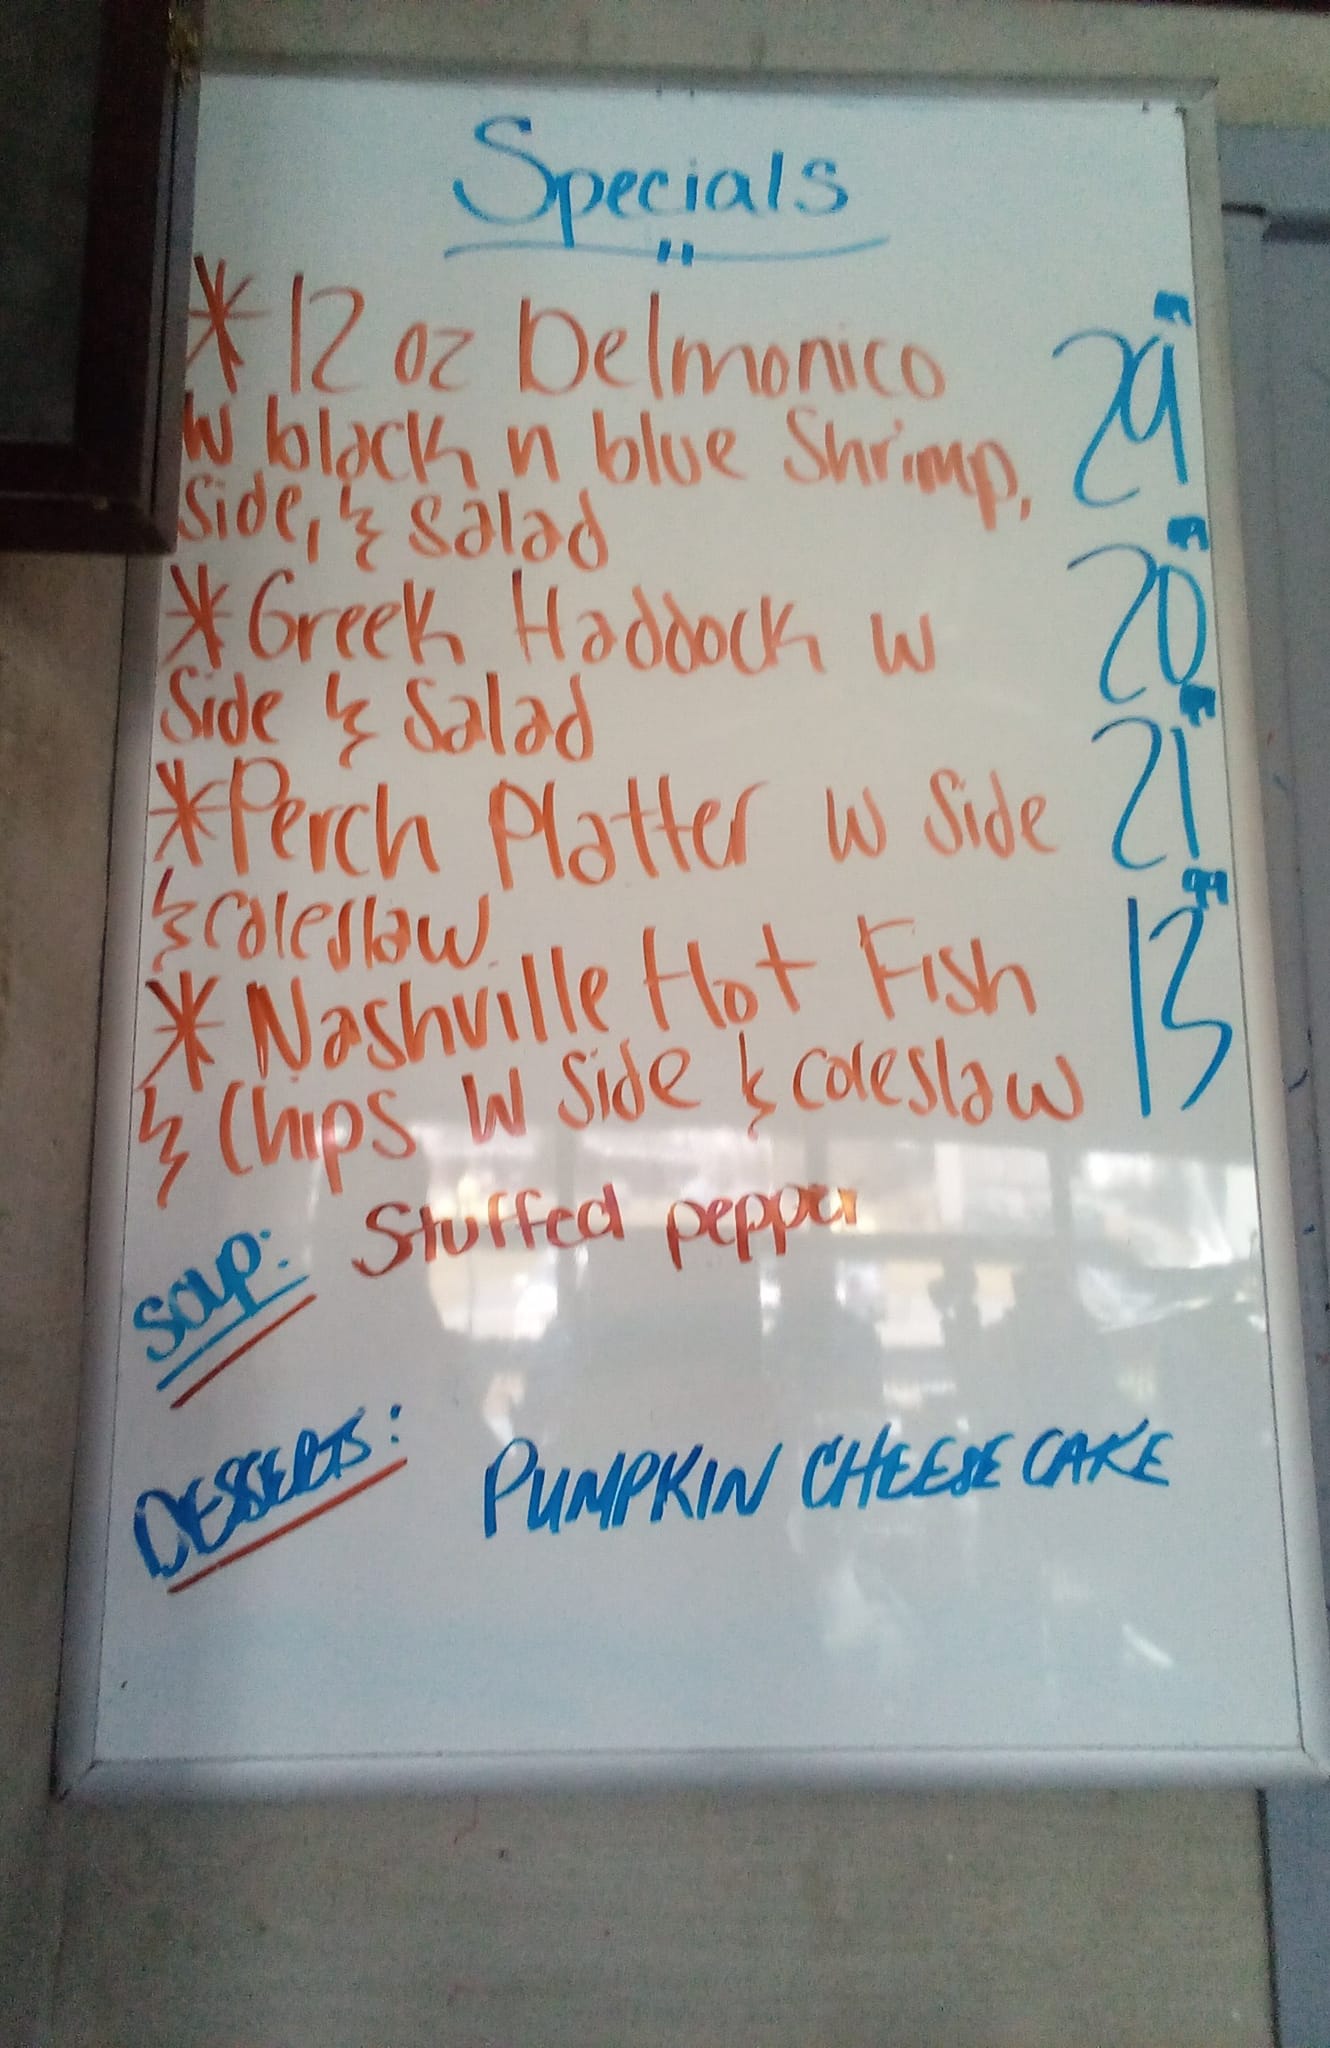 Specials
"
* 12 oz Delmonico 29 99
w black n blue Shrimp,
Side, & Salad
* Greek Haddock w 20 99
Side & Salad
* Perch Platter w Side 21 99
& Coleslaw
* Nashville Hot Fish 13 99
& Chips w Side & Coleslaw
Soup: Stuffed pepper
DESSERTS: PUMPKIN CHEESE CAKE